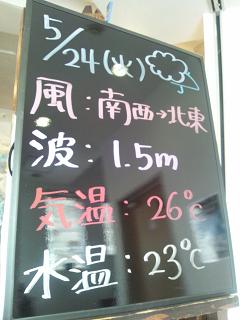 5/24(火)
風:南西→北東
波:1.5m
気温:26℃
水温:23℃